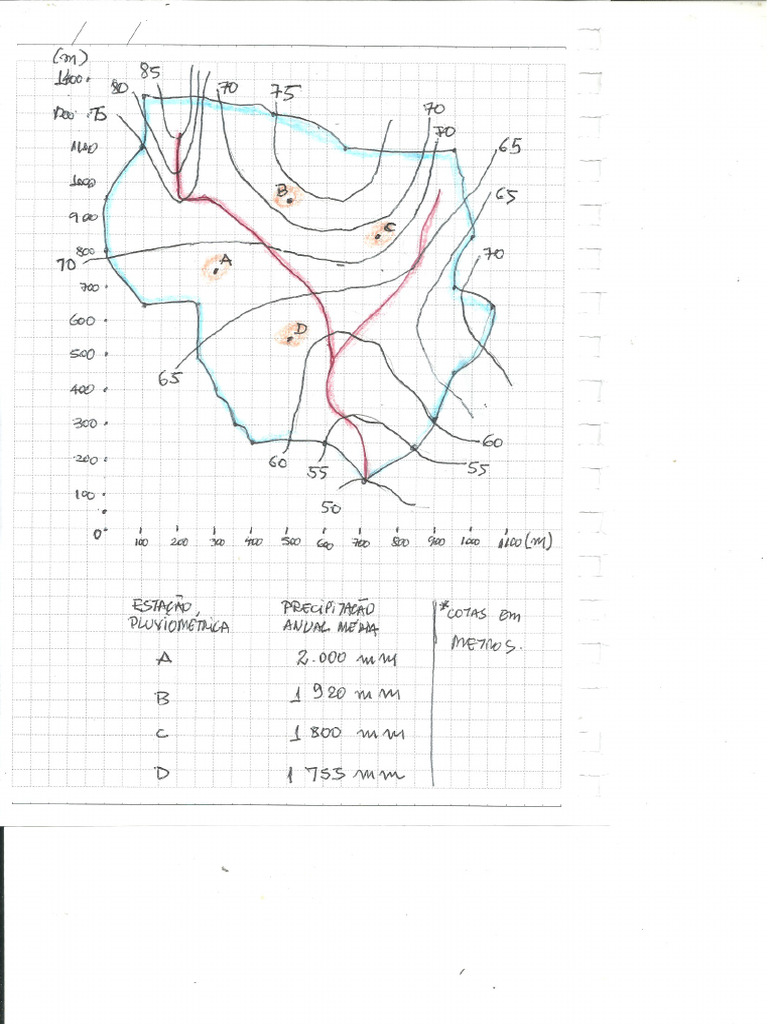 (m)
1400
85
80
70
75
1200
75
70
70
1100
65
1000
B
65
900
C
800
A
70
70
700
600
D
500
65
400
300
60
60
55
55
200
50
100
0
100 200 300 400 500 600 700 800 900 1000 1100 (m)
ESTAÇÃO PRECIPITAÇÃO *COTAS EM
PLUVIOMÉTRICA ANUAL MÉDIA METROS.
A 2.000 mm
B 1 920 mm
C 1 800 mm
D 1 755 mm